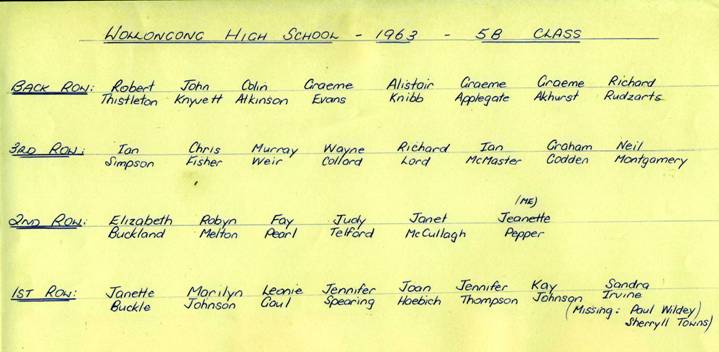 WOLLONGONG HIGH SCHOOL - 1963 - 5B CLASS
BACK ROW: Robert John Colin Graeme Alistair Graeme Graeme Richard
Thistleton Knyvett Atkinson Evans Knibb Applegate Akhurst Rudzarts
3RD ROW: Ian Chris Murray Wayne Richard Ian Graham Neil
Simpson Fisher Weir Collard Lord McMaster Godden Montgamery
(ME)
2ND ROW: Elizabeth Robyn Fay Judy Janet Jeanette
Buckland Melton Pearl Telford McCullagh Pepper
1ST ROW: Janette Marilyn Leonie Jennifer Joan Jennifer Kay Sandra
Buckle Johnson Gaul Spearing Haebich Thompson Johnson Irvine
(Missing: Paul Wildey)
Sherryll Towns)